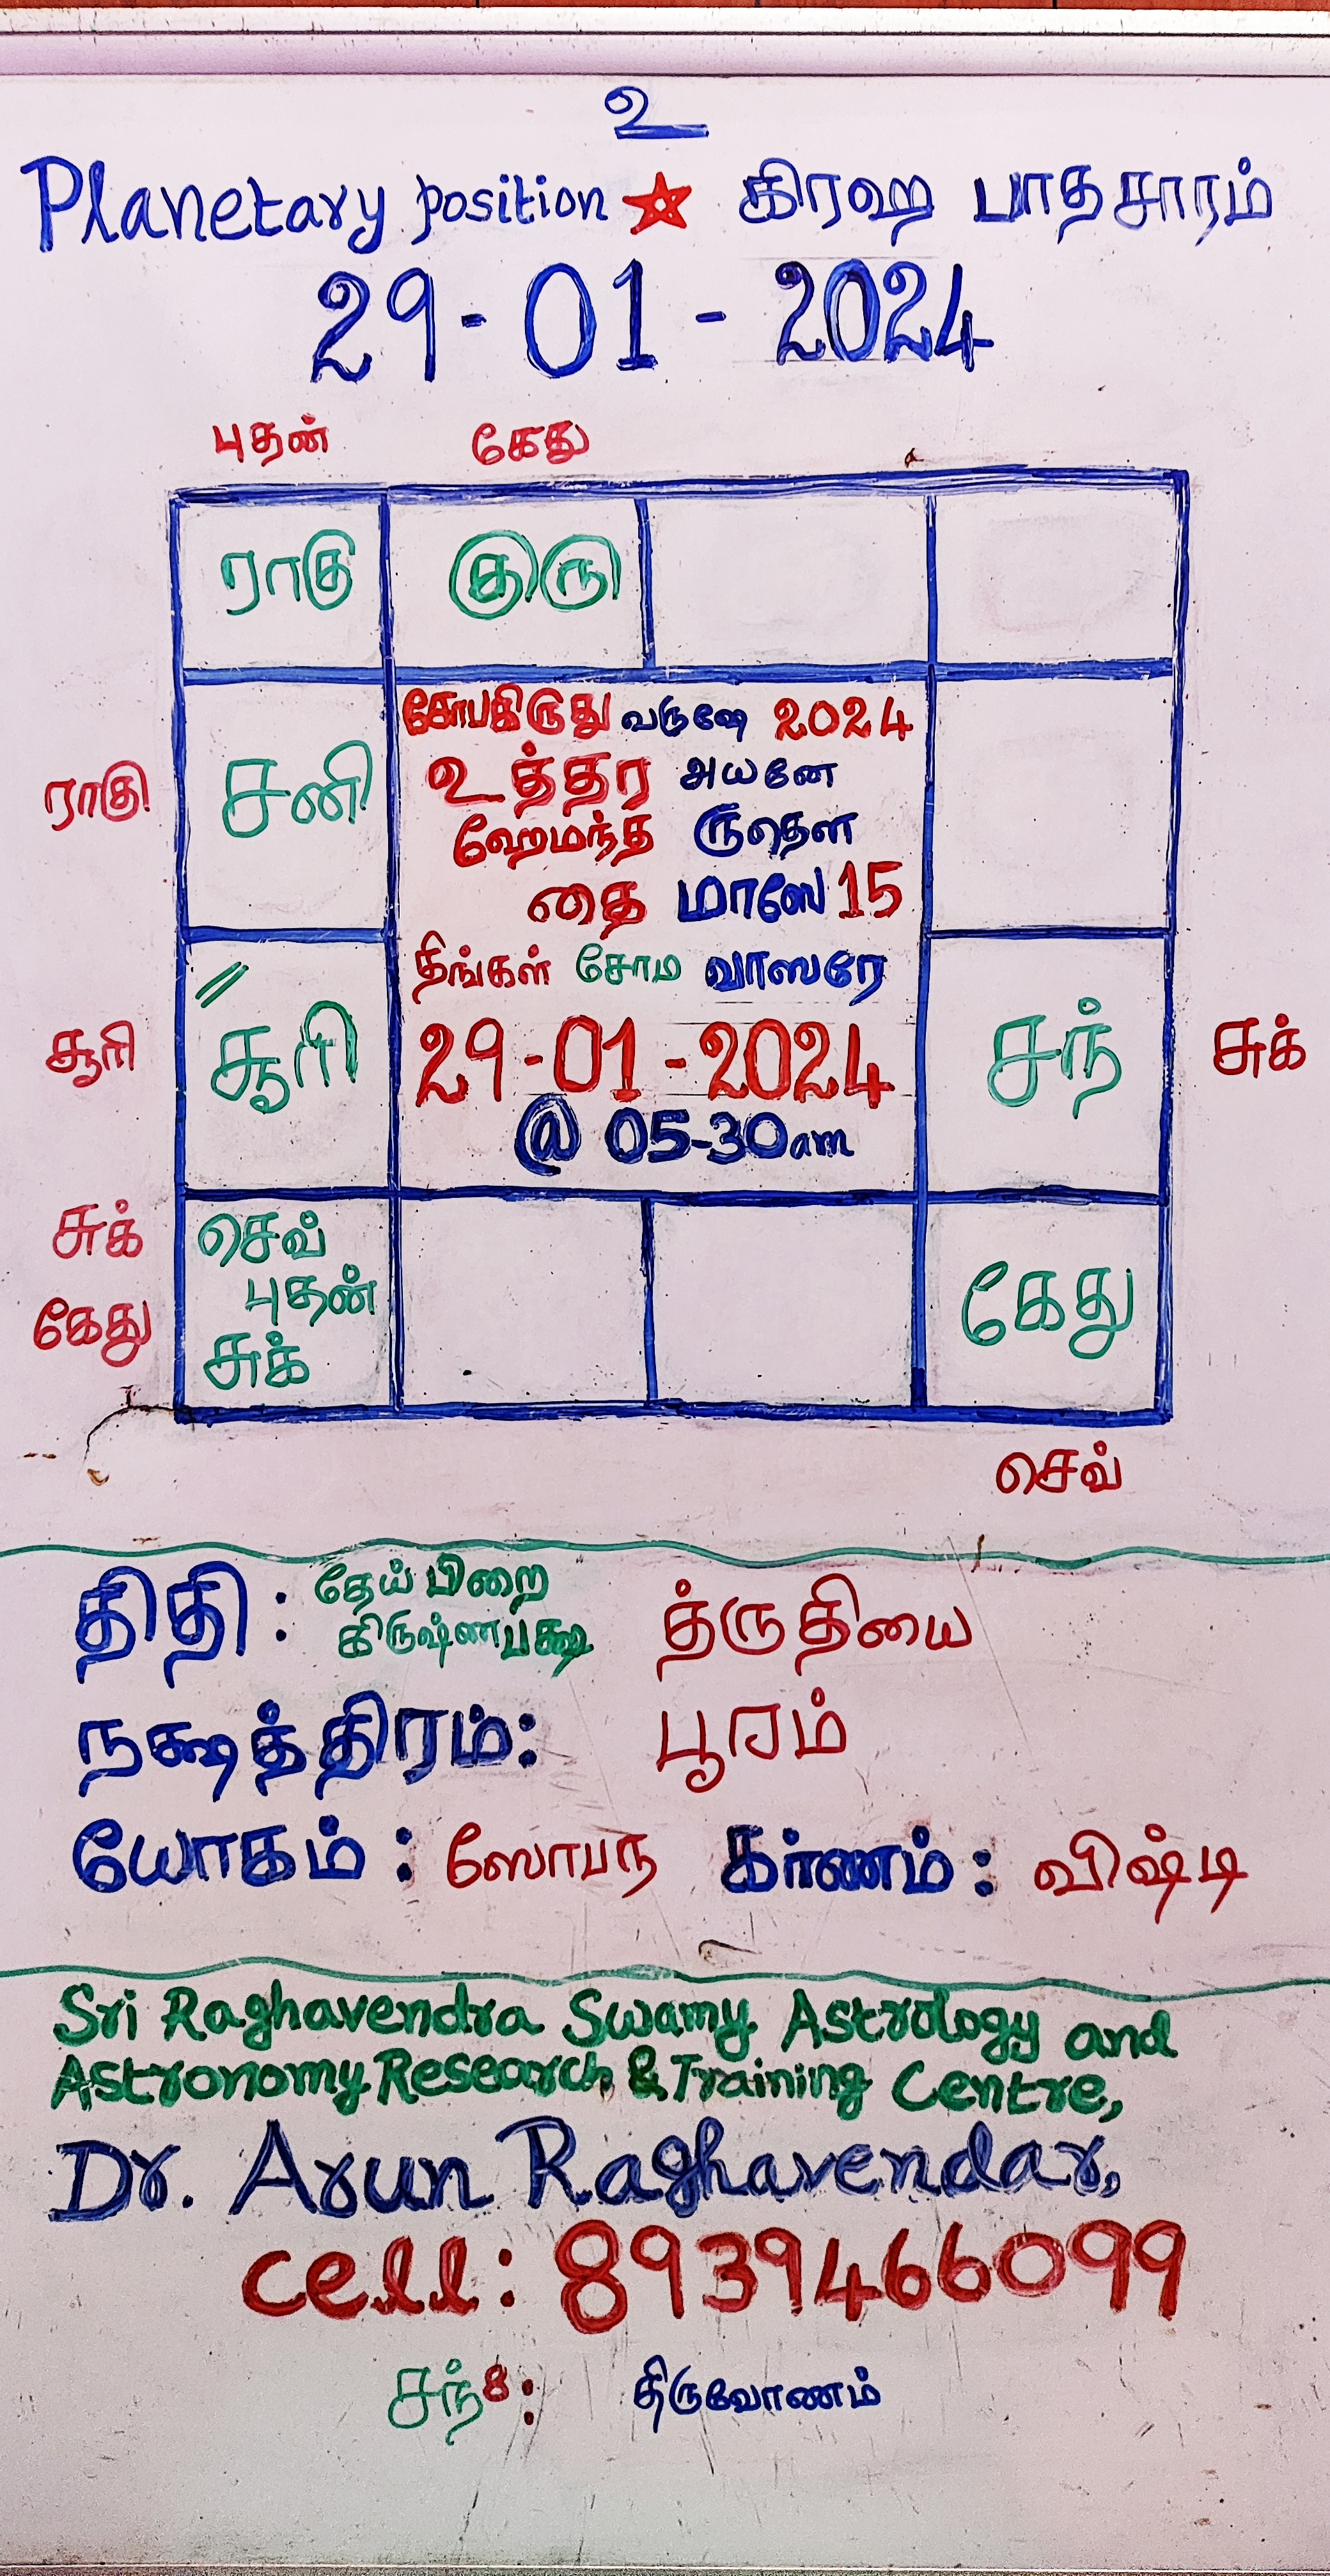 உ
Planetary position ★ கிரஹ பாதசாரம்
29-01-2024
புதன் கேது
ராகு குரு
கோபகிருது வருஷே 2024
உத்தர அயனே
ராகு சனி
ஹேமந்த ருதௌ
தை மாஸே 15
திங்கள் சோம வாஸரே
சூரி சூரி 29-01-2024 சந் சுக்
@ 05-30am
சுக் செவ்
புதன்
கேது கேது
சுக்
செவ்
திதி : தேய்பிறை
கிருஷ்ணபக்ஷ த்ருதியை
நக்ஷத்திரம்: பூரம்
யோகம் : ஸோபந கர்ணம் : விஷ்டி
Sri Raghavendra Swamy Astrology and
Astronomy Research & Training Centre,
Dr. Arun Raghavendar,
cell: 8939466099
சந் 8: திருவோணம்